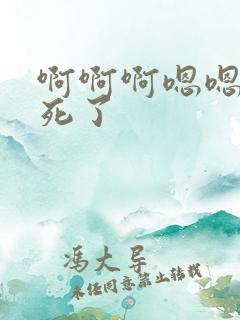 啊啊啊嗯嗯
死了
冯大导
未经同意禁止转载